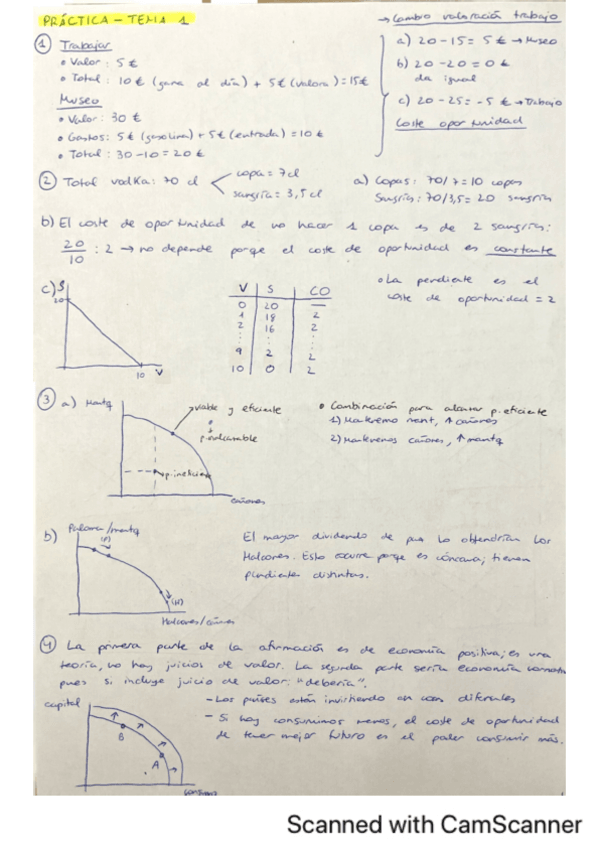 PRÁCTICA - TEMA 1
① Trabajar
• Valor: 5 €
• Total: 10 € (gana al día) + 5 € (valora) = 15 €
Museo
• Valor: 30 €
• Gastos: 5 € (gasolina) + 5 € (entrada) = 10 €
• Total: 30 - 10 = 20 €
→ Cambio valoración trabajo
a) 20 - 15 = 5 € → Museo
b) 20 - 20 = 0 €
da igual
c) 20 - 25 = -5 € → Trabajo
Coste oportunidad
② Total vodka: 70 cl
copa = 7 cl
sangría = 3,5 cl
a) Copas: 70/7 = 10 copas
Sangría: 70/3,5 = 20 sangrías
b) El coste de oportunidad de no hacer 1 copa es de 2 sangrías:
20/10 : 2 → no depende porque el coste de oportunidad es constante
c) S
20
10 V
V S CO
0 20 —
1 18 2
2 16 2
⋮ ⋮ ⋮
9 2 2
10 0 2
• La pendiente es el
coste de oportunidad = 2
③ a) Mantq
viable y eficiente
p. inalcanzable
p. ineficiente
cañones
• Combinación para alcanzar p. eficiente
1) Mantenemos mant, ↑ cañones
2) Mantenemos cañones, ↑ mantq
b) Paloma/mantq
(P)
(H)
Halcones/cañones
El mayor dividendo de paz lo obtendrían los
Halcones. Esto ocurre porque es cóncava; tienen
pendientes distintas.
④ La primera parte de la afirmación es de economía positiva; es una
teoría, no hay juicios de valor. La segunda parte sería economía normativa
pues si incluye juicio de valor: "debería".
capital
B
A
consumo
- Los países están invirtiendo en diferentes
- Si hoy consumimos menos, el coste de oportunidad
de tener mejor futuro es el poder consumir más.
Scanned with CamScanner